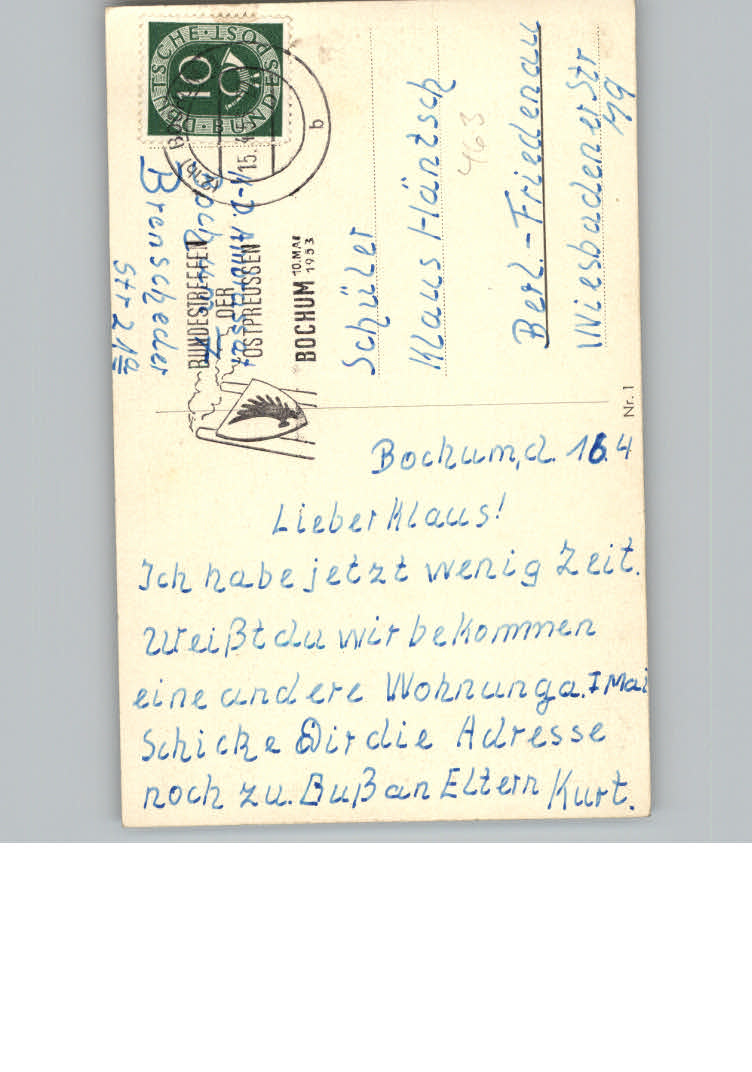 DEUTSCHE · BUNDESPOST
10
15. 4
b
BUNDESTREFFEN
DER
OSTPREUSSEN
BOCHUM 10. MAI
1953
Brenscheder
Str 21a
463
Schüler
Klaus Häntsch
Berl.-Friedenau
Wiesbadener Str
Nr. 1
Bochum, d. 16.4
Lieber Klaus!
Ich habe jetzt wenig Zeit.
Weißt du wir bekommen
eine andere Wohnung a. I Mai
Schicke Dir die Adresse
noch zu. Bußan Eltern Kurt.